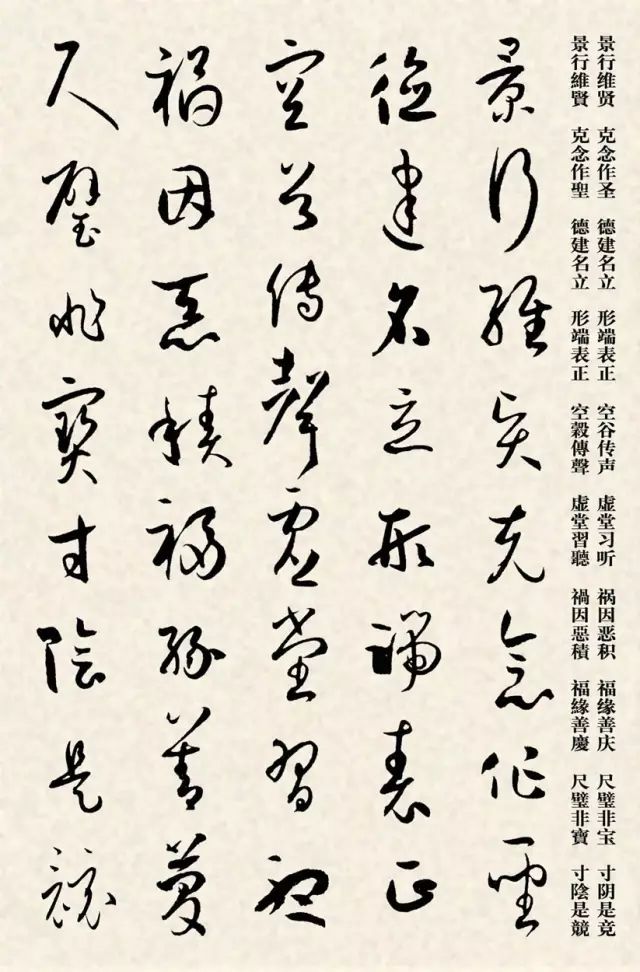 景行维贤 克念作圣 德建名立 形端表正 空谷传声 虚堂习听 祸因恶积 福缘善庆 尺璧非宝 寸阴是竞
景行維賢 克念作聖 德建名立 形端表正 空穀傳聲 虛堂習聽 禍因惡積 福緣善慶 尺璧非寶 寸陰是競
景行維賢克念作聖
德建名立形端表正
空谷傳聲虛堂習聽
禍因惡積福緣善慶
尺璧非寶寸陰是競